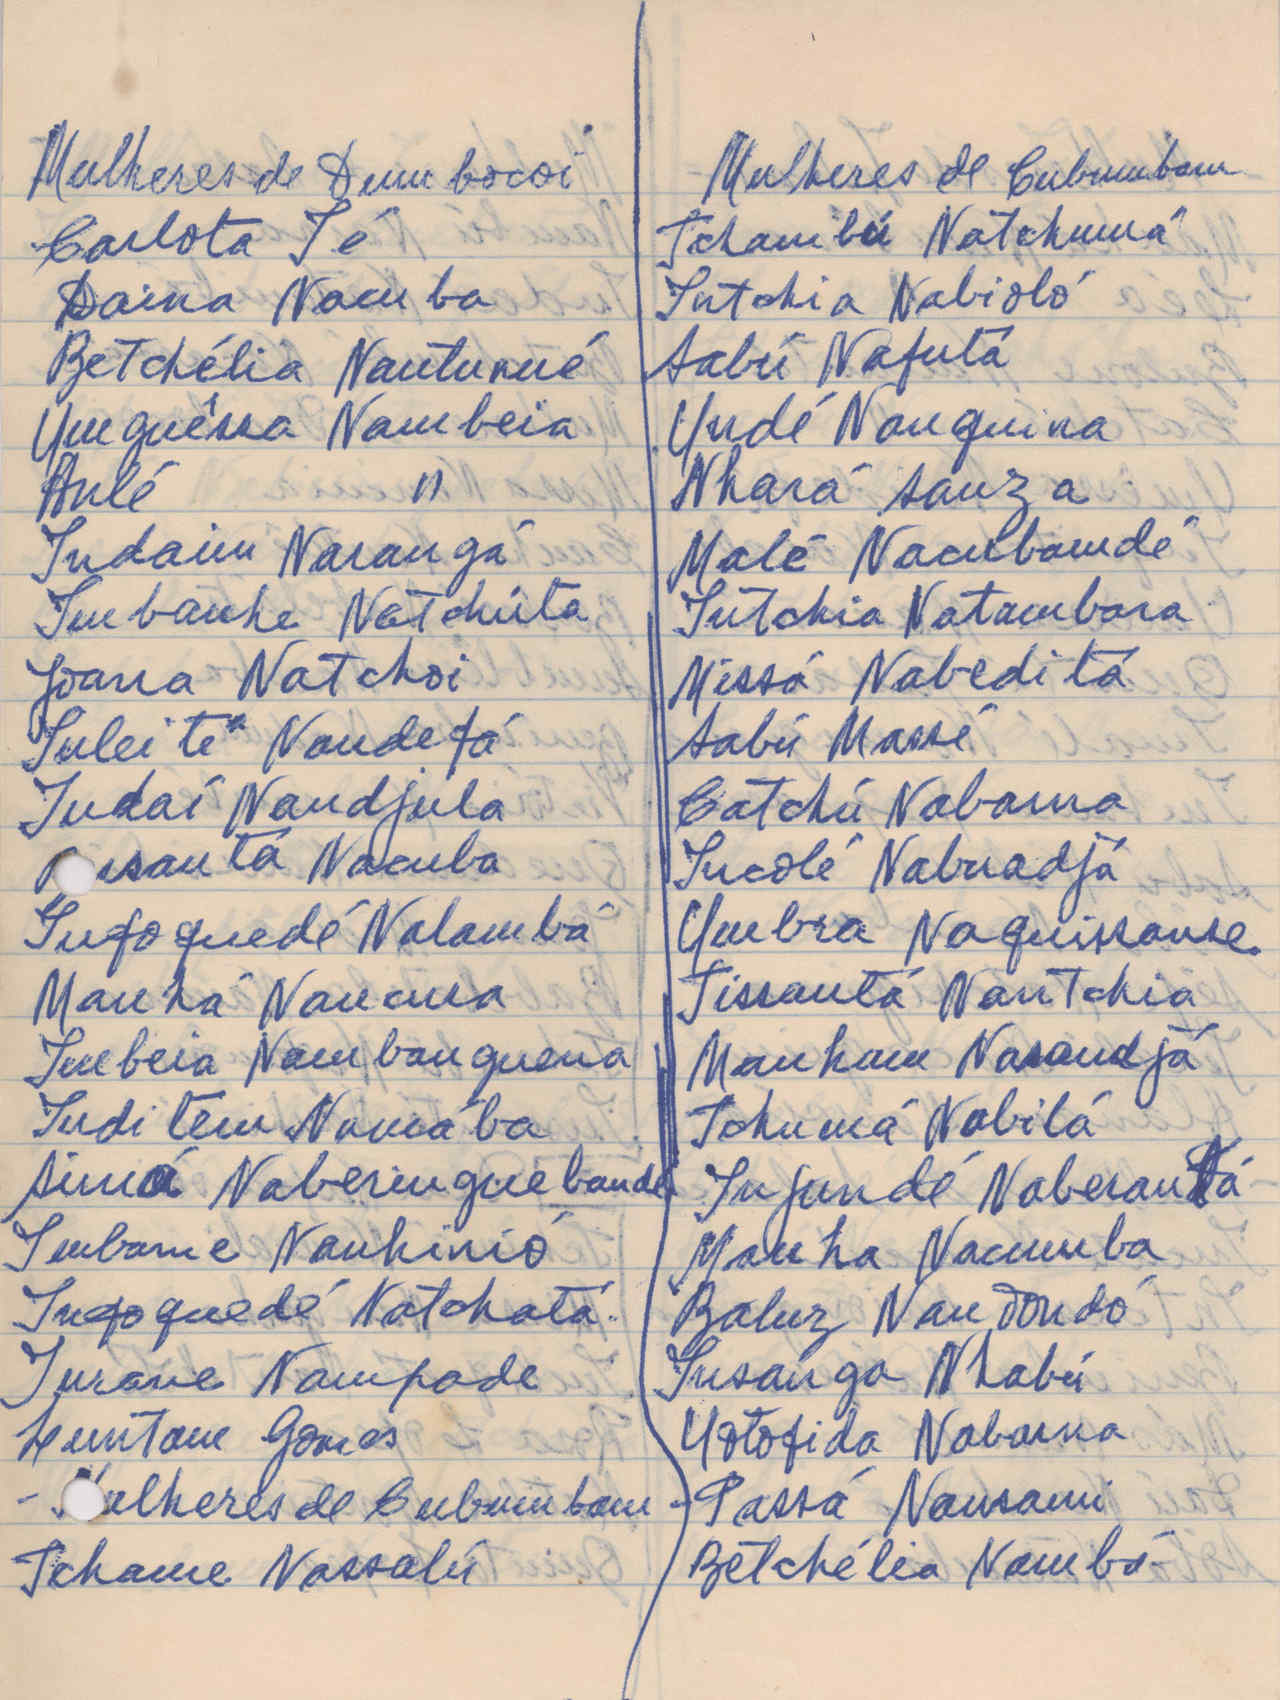 Mulheres de Dum bocoi
Carlota Té
Daina Nacuba
Betchélia Nantumé
Umguêssa Nambeia
Aulé "
Indaim Narangá
Imbanhe Natchúta
Joana Natchoi
Suleité Naudefá
Indaí Nandjula
Nacuba
Infoquedé Nalambá
Manhá Nancusa
Imbeia Nambanguena
Inditem Namába
Simá Naberinguebande
Imbame Nanhinió
Infoquedé Natchatá.
Jurane Nampade
Gomes
- Mulheres de Cubumbam
Tchame Nassalú
Mulheres de Cubumbam
Tchambú Natchumá
Intchia Nabioló
Sabú Nafutá
Undé Nanquina
Nhará Sanza
Malé Nacubamdé
Intchia Natambara
Missá Nabeditá
Sabú Massé
Catchú Nabarna
Incolé Nabuadjá
Umbra Naquissanse
Tissantá Nantchia
Manhum Nasandjá
Tchumá Nabilá
Injundé Naberantá
Manha Nacumba
Baluz Nandondó
Insanga Nhabú
Uotofida Nabarna
- Passá Nansami
Betchélia Nambá